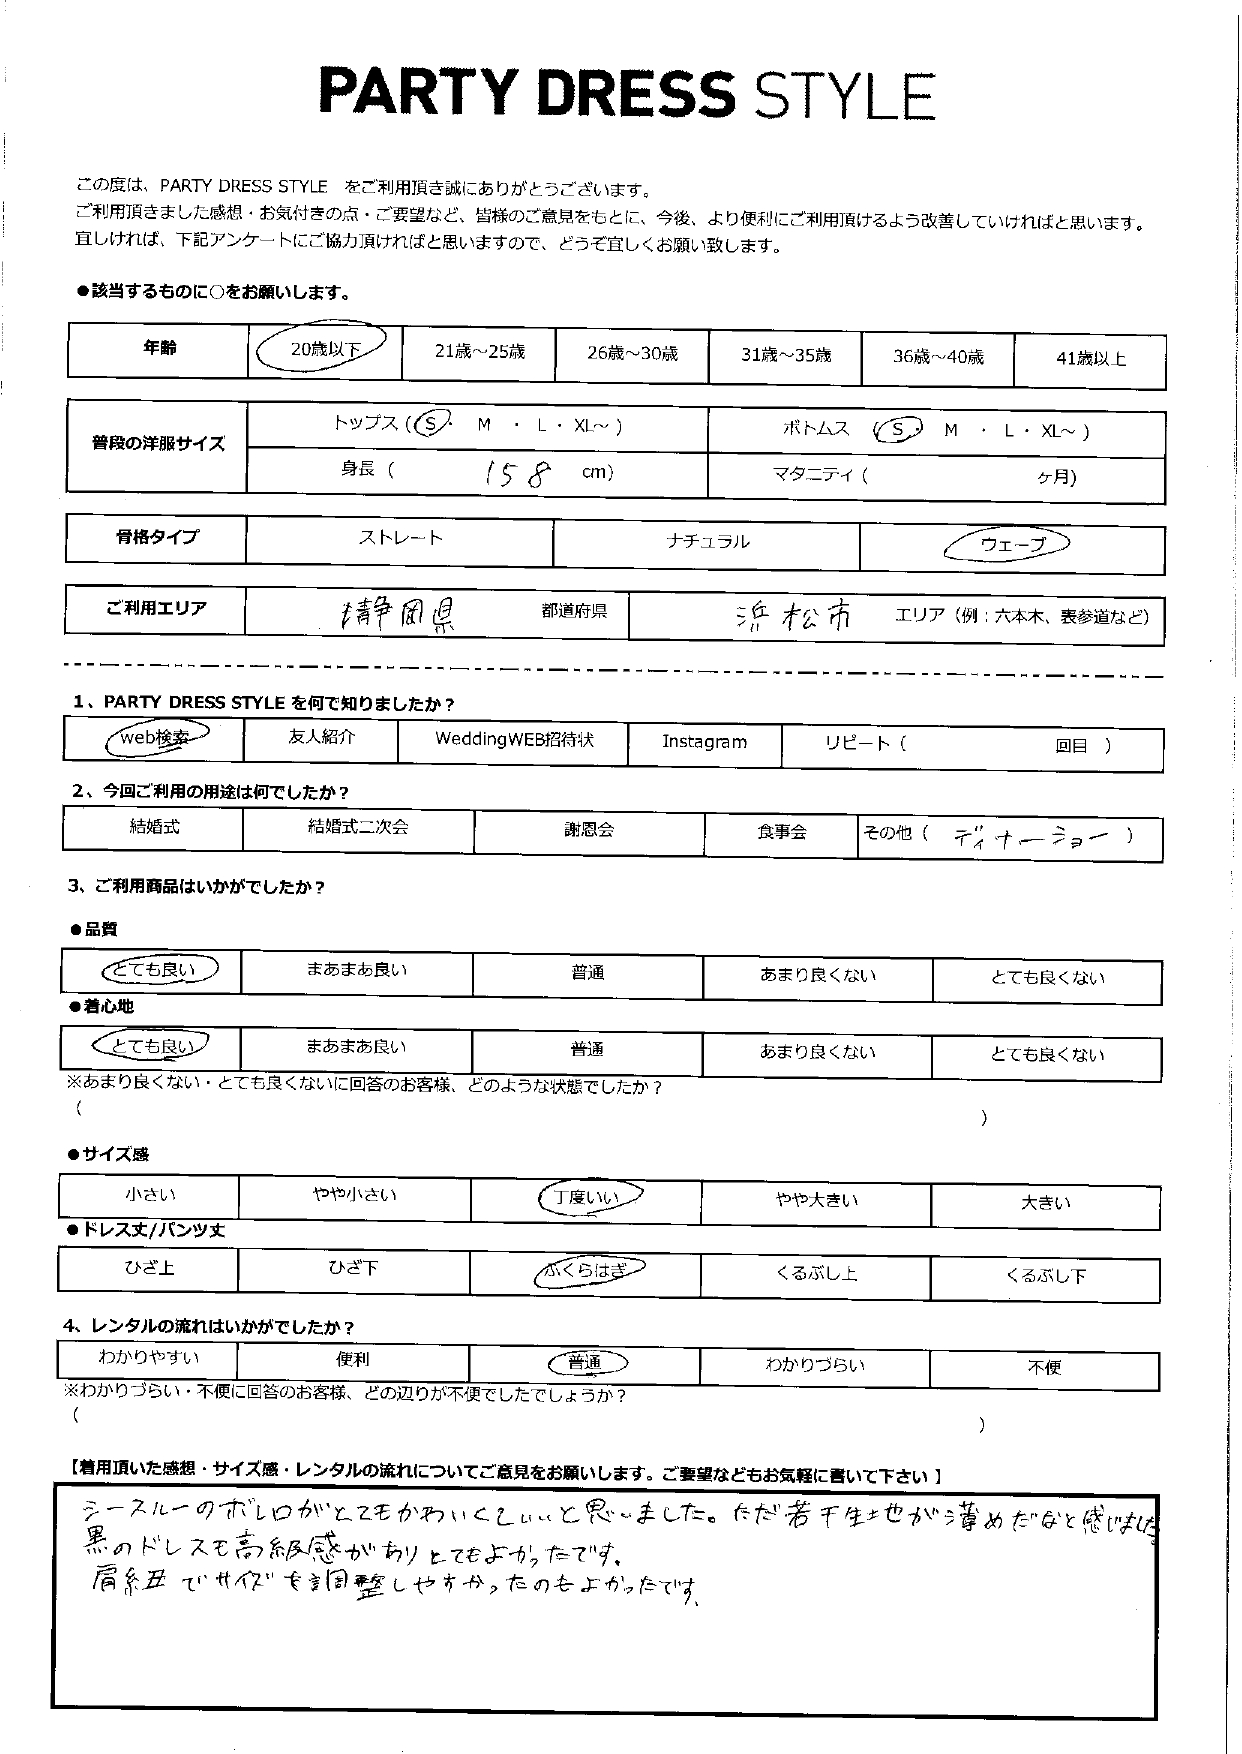 PARTY DRESS STYLE
この度は、PARTY DRESS STYLE をご利用頂き誠にありがとうございます。
ご利用頂きました感想・お気付きの点・ご要望など、皆様のご意見をもとに、今後、より便利にご利用頂けるよう改善していければと思います。
宜しければ、下記アンケートにご協力頂ければと思いますので、どうぞ宜しくお願い致します。
●該当するものに○をお願いします。
年齢 20歳以下 21歳～25歳 26歳～30歳 31歳～35歳 36歳～40歳 41歳以上
普段の洋服サイズ
トップス (S・ M ・ L・ XL～ ) ボトムス (S・ M ・ L・ XL～ )
身長 ( 158 cm) マタニティ ( ヶ月)
骨格タイプ ストレート ナチュラル ウェーブ
ご利用エリア 静岡県 都道府県 浜松市 エリア（例：六本木、表参道など）
1、PARTY DRESS STYLE を何で知りましたか？
web検索 友人紹介 WeddingWEB招待状 Instagram リピート（ 回目 ）
2、今回ご利用の用途は何でしたか？
結婚式 結婚式二次会 謝恩会 食事会 その他（ ディナーショー ）
3、ご利用商品はいかがでしたか？
●品質
とても良い まあまあ良い 普通 あまり良くない とても良くない
●着心地
とても良い まあまあ良い 普通 あまり良くない とても良くない
※あまり良くない・とても良くないに回答のお客様、どのような状態でしたか？
( )
●サイズ感
小さい やや小さい 丁度いい やや大きい 大きい
●ドレス丈/パンツ丈
ひざ上 ひざ下 ふくらはぎ くるぶし上 くるぶし下
4、レンタルの流れはいかがでしたか？
わかりやすい 便利 普通 わかりづらい 不便
※わかりづらい・不便に回答のお客様、どの辺りが不便でしたでしょうか？
( )
【着用頂いた感想・サイズ感・レンタルの流れについてご意見をお願いします。ご要望などもお気軽に書いて下さい 】
シースルーのボレロがとてもかわいくていいと思いました。ただ若干生地がう薄めだなと感じました。
黒のドレスも高級感がありとてもよかったです。
肩紐でサイズを調整しやすかったのもよかったです。